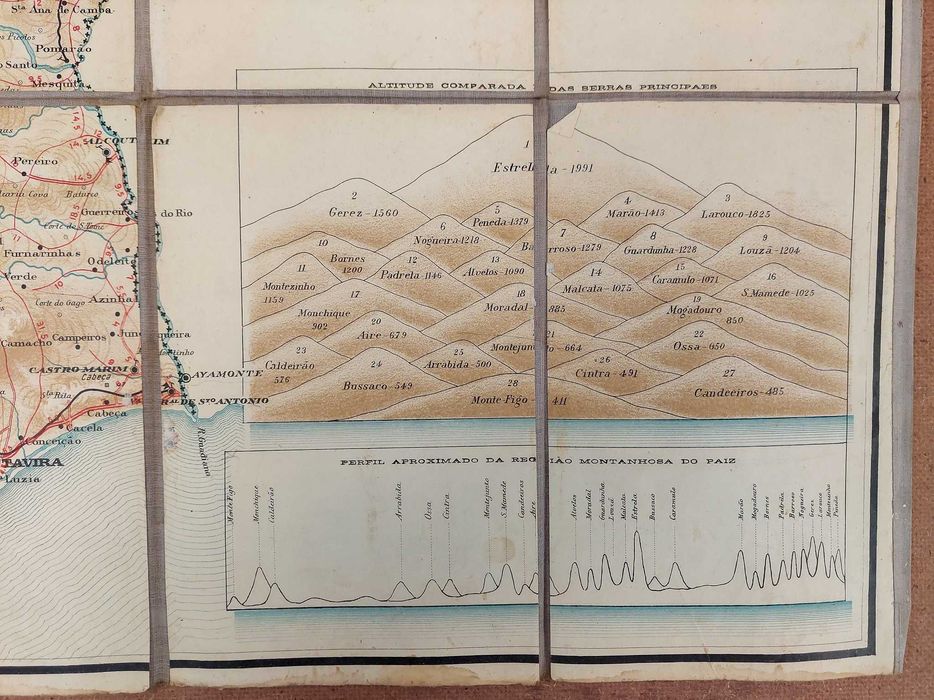 Sta Ana de Camba
Pomarão
Santo
Mesquita
9,5
ALTITUDE COMPARADA DAS SERRAS PRINCIPAES
14,5
12
ALCOUTIM
Pereiro
14,5
9,5
18,5
Guerreiro do Rio
Furnazinhas
Odeleite
Verde
Corte do Gago
Azinhal
Junqueira
Camacho
Campeiros
CASTRO MARIM
Cabeça
AYAMONTE
Sta Rita
REAL DE STO ANTONIO
Cabeça
Cacela
Conceição
TAVIRA
Luzia
R. Guadiana
1
Estrella - 1991
2
Gerez - 1560
3
Larouco - 1825
4
Marão - 1413
5
Peneda - 1379
6
Nogueira - 1218
7
Barroso - 1279
8
Guardunha - 1228
9
Louzã - 1204
10
Bornes
1200
11
Montezinho
1159
12
Padrela - 1146
13
Alvelos - 1090
14
Malcata - 1075
15
Caramulo - 1071
16
S. Mamede - 1025
17
Monchique
902
18
Moradal - 885
19
Mogadouro
850
20
Aire - 679
21
Montejunto - 664
22
Ossa - 650
23
Caldeirão
576
24
Bussaco - 549
25
Arrabida - 500
26
Cintra - 491
27
Candeeiros - 485
28
Monte-Figo - 411
PERFIL APROXIMADO DA REGIÃO MONTANHOSA DO PAIZ
Monte Figo
Monchique
Caldeirão
Arrabida
Ossa
Cintra
Montejunto
S. Mamede
Candeeiros
Aire
Alvelos
Moradal
Guardunha
Louzã
Malcata
Estrela
Bussaco
Caramulo
Marão
Mogadouro
Bornes
Padrela
Barroso
Nogueira
Gerez
Larouco
Montezinho
Peneda